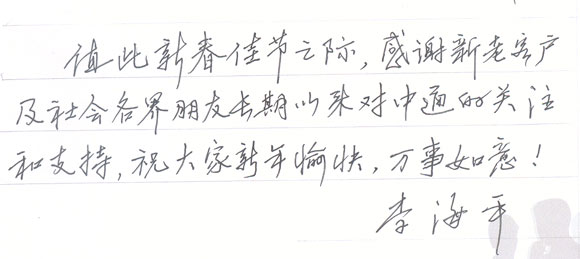 值此新春佳节之际，感谢新老客户
及社会各界朋友长期以来对中通的关注
和支持，祝大家新年愉快，万事如意！
李海平